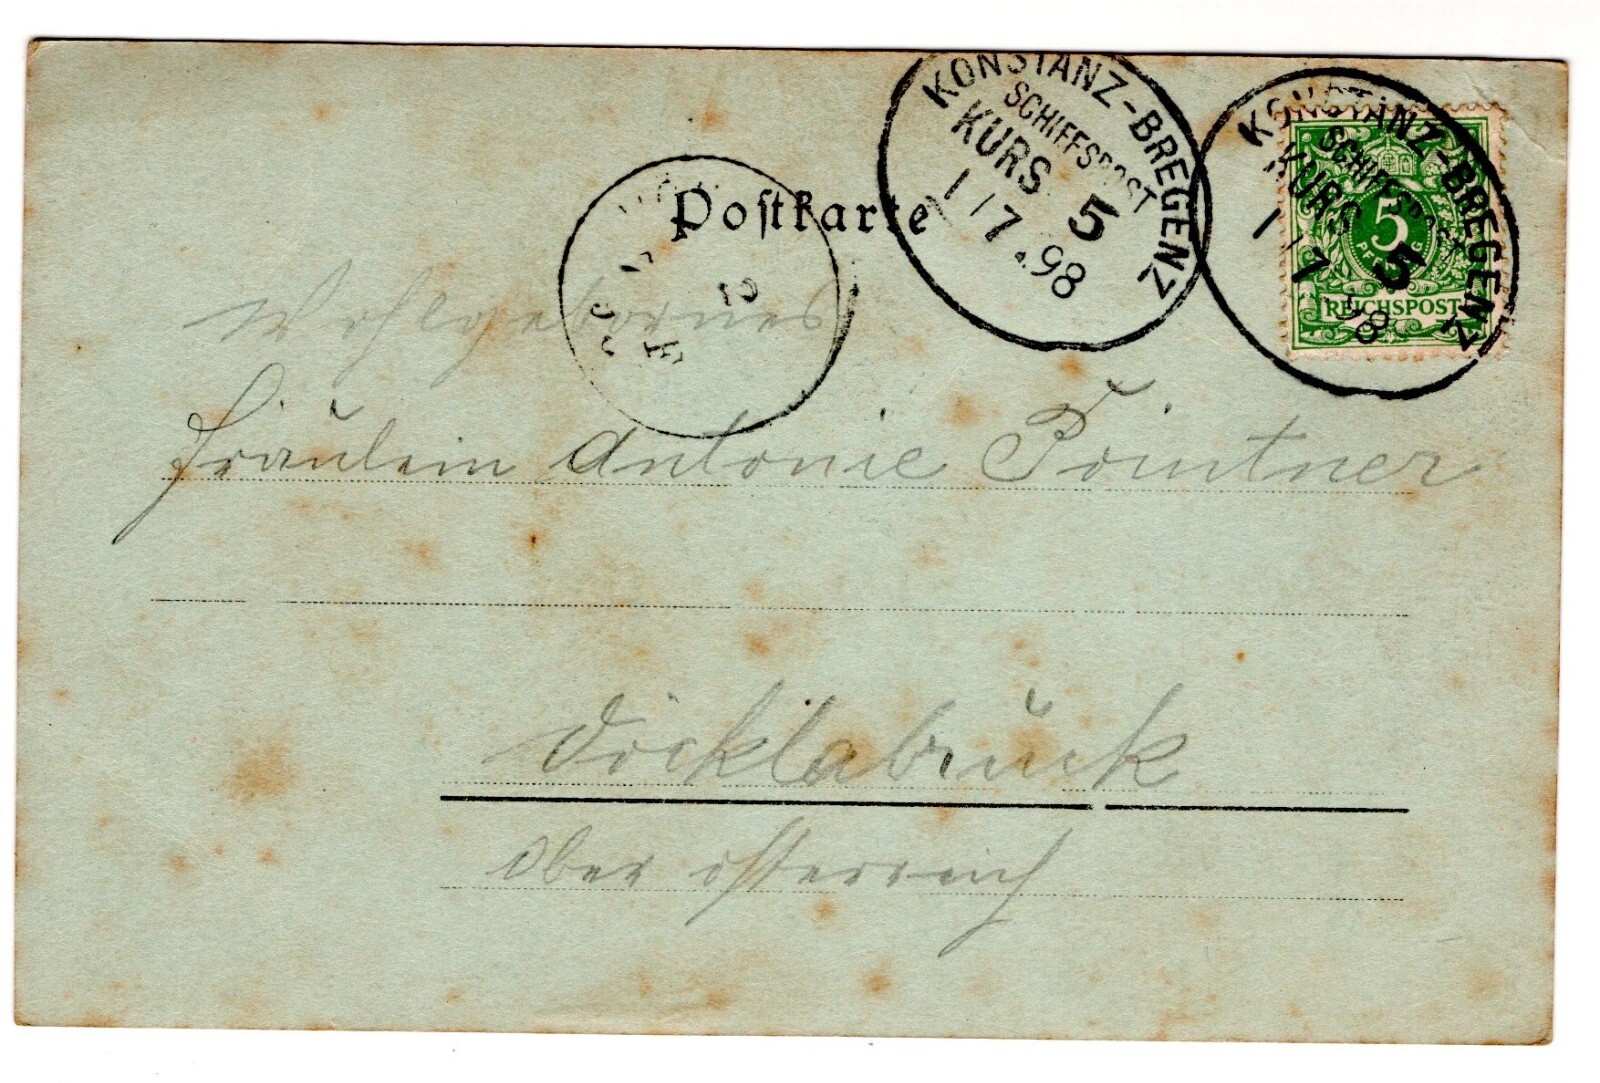 KONSTANZ-BREGENZ
SCHIFFSPOST
KURS 5
1/7.98
KONSTANZ-BREGENZ
SCHIFFSPOST
KURS 5
1/7 98
5
PFENNIG
REICHSPOST
Postkarte
Wohlgebornes
Fräulein Antonie Pointner
Vöcklabruck
Ober österreich